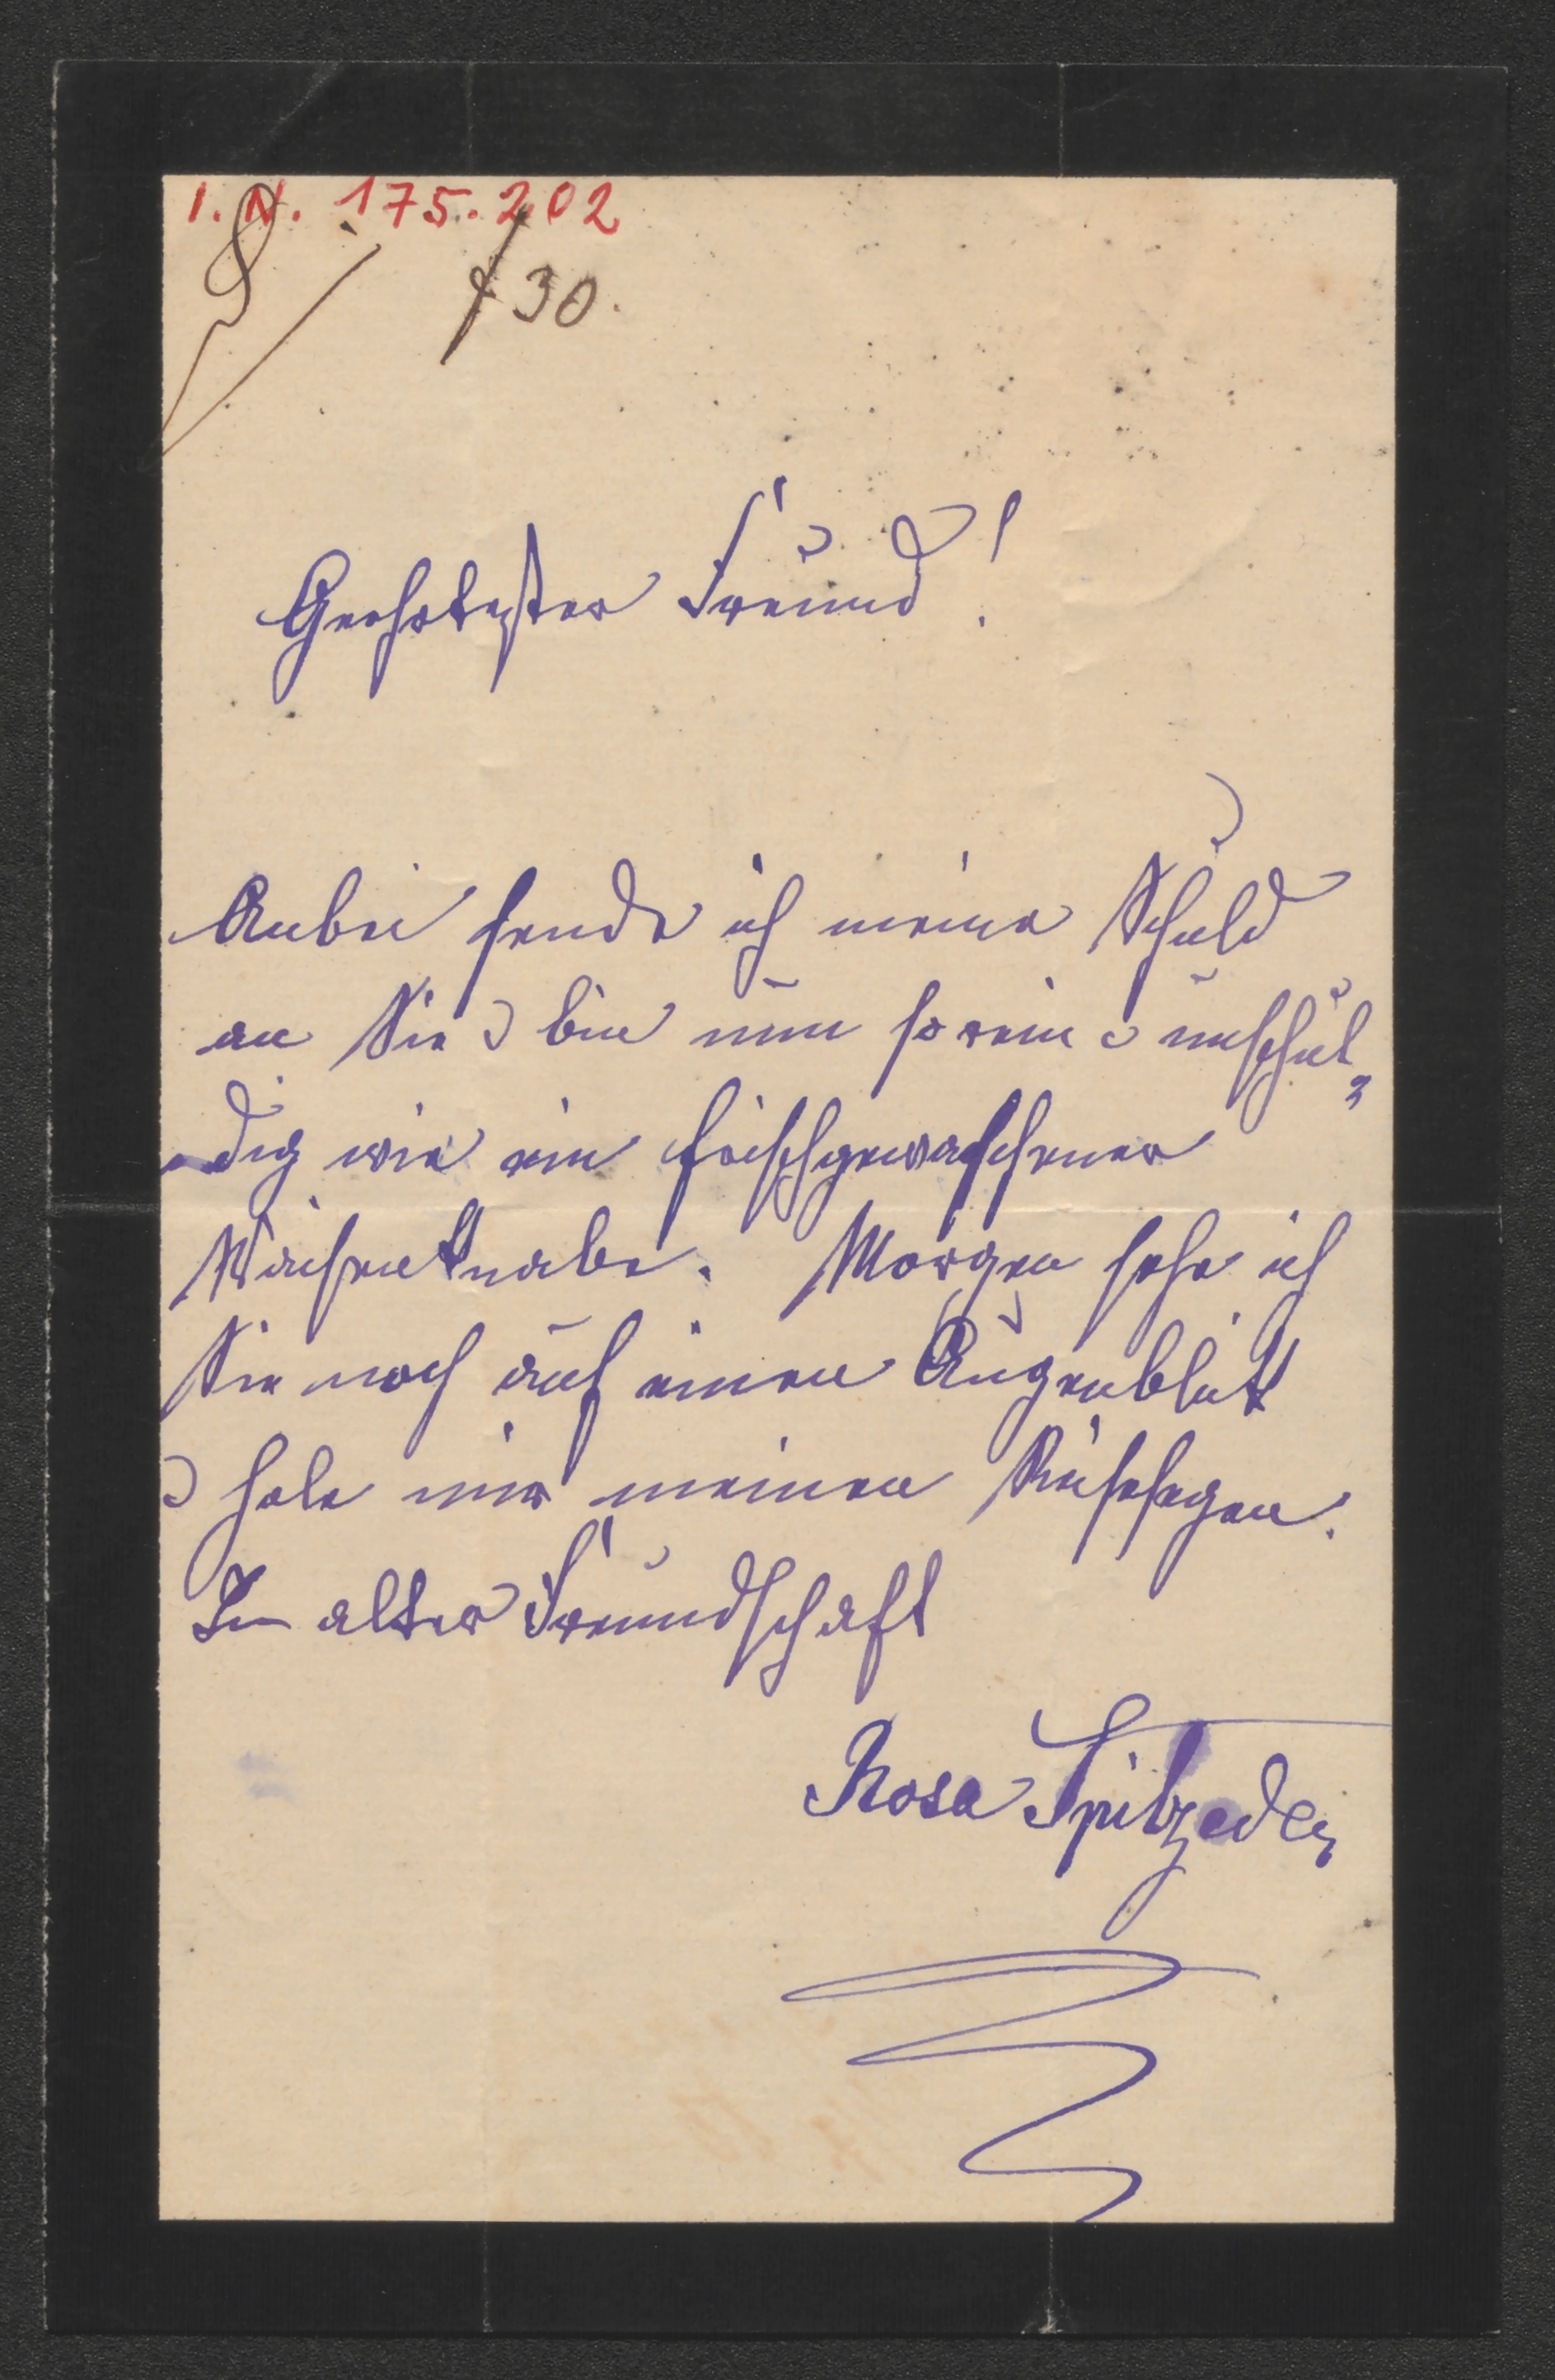 I. N. 175.202
f 30.
Geehrtester Freund!
Anbei sende ich meine Schuld
an Sie u bin nun so rein u unschul„
dig wie ein frischgewaschener
Waisenknabe. Morgen sehe ich
Sie noch auf einen Augenblik
u hole mir meinen Reisesegen.
In alter Freundschaft
Rosa Spitzeder